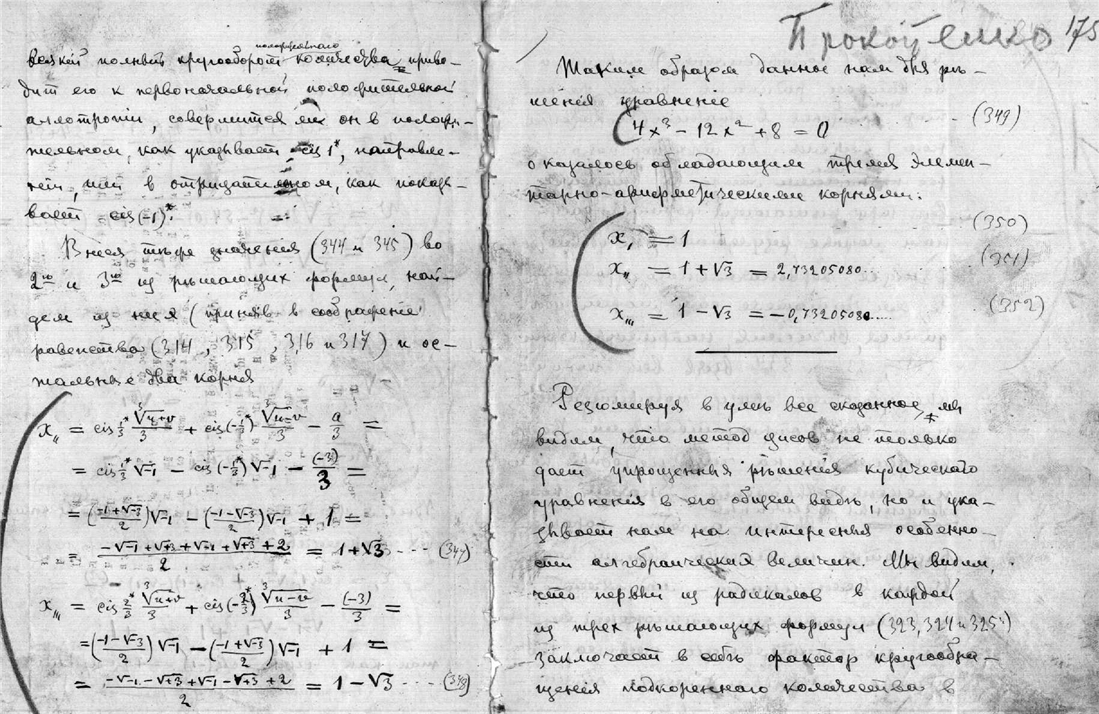 всякий полный кругооборот количества приво-
положительного
дит его к первоначальной положительной
аллотропии, совершится ли он в полож-
тельном, как указывает cis 1*, направле-
нии, или в отрицательном, как показы-
вает cis(-1)*.
Внеся тъ значения (344 и 345) во
2ю и 3ю из ръшающих формул, най-
дем из нея (приняв в соображение
равенства (314, 315, 316 и 317) и ос-
тальные два корня
x,, = cis 1/3* ∛(u+v)/3 + cis(-1/3)* ∛(u-v)/3 - a/3 =
= cis 1/3* √-1 - cis(-1/3)* √-1 - (-3)/3 =
= ((-1+√-3)/2)√-1 - ((-1-√-3)/2)√-1 + 1 =
= (-√-1 + √+3 + √-1 + √+3 + 2)/2 = 1+√3 ···· (347)
x,,, = cis 2/3* ∛(u+v)/3 + cis(-2/3)* ∛(u-v)/3 - (-3)/3 =
=((-1-√-3)/2)√-1 - ((-1+√-3)/2)√-1 + 1 =
= (-√-1 - √+3 + √-1 - √+3 + 2)/2 = 1-√3 ···· (348)
175
Таким образом данное нам для ръ-
шения уравнение
4x³ - 12x² + 8 = 0 (349)
оказалось обладающим тремя элемен-
тарно-арифметическими корнями:
x, = 1 (350)
x,, = 1+√3 = 2,73205080.. (351)
x,,, = 1-√3 = -0,73205080.... (352)
Резюмируя в умъ все сказанное, мы
видим, что метод цисов не только
дает упрощенныя ръшения кубическаго
уравнения в его общем видъ, но и ука-
зывает нам на интересныя особенно-
сти алгебраических величин. Мы видим,
что первый из радикалов в каждой
из трех ръшающих формул (323, 324 и 325)
заключает в себъ фактор кругообра-
щения подкореннаго количества в